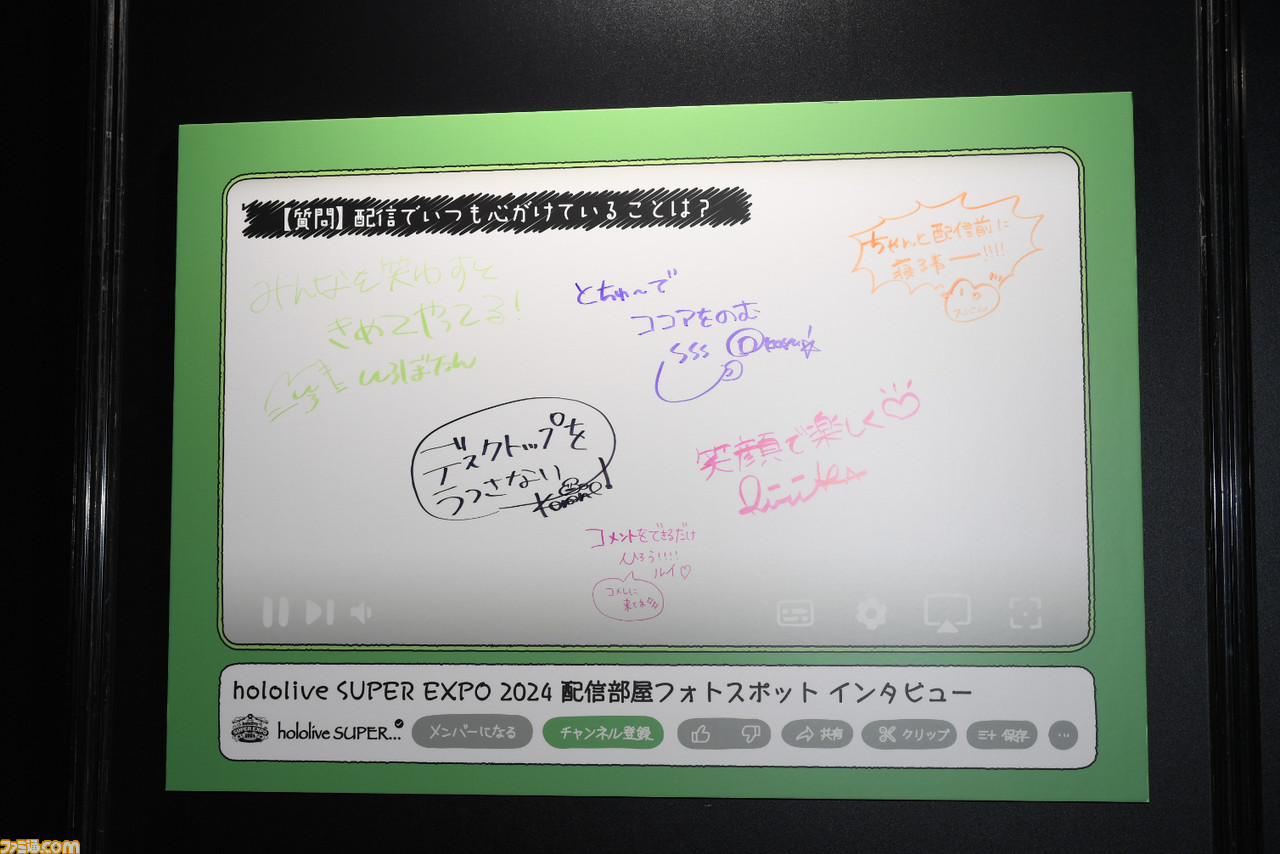 【質問】配信でいつも心がけていることは？
みんなを笑わすと
きめてやってる!
ししろぼたん
とちゅ〜で
ココアをのむ
sss
ちゃんと配信前に
寝る本ー!!!!
デスクトップを
うつさない
Korone!
笑顔で楽しく♡
コメントをできるだけ
ひろう!!!!
ルイ♡
コメしに
来てね
hololive SUPER EXPO 2024 配信部屋フォトスポット インタビュー
hololive SUPER...
メンバーになる
チャンネル登録
共有
クリップ
保存
ファミ通.com